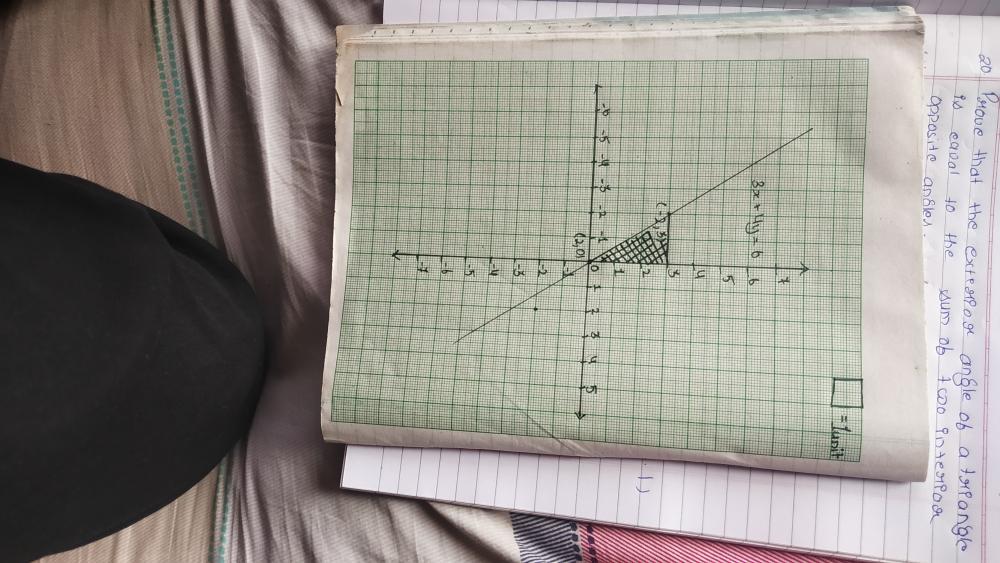 20 Prove that the exterior angle of a triangle
is equal to the sum of two interior
opposite angles.
= 1unit
3x+4y=6
7
6
5
4
3
2
1
(-2,3)
-6 -5 -4 -3 -2 -1 0 1 2 3 4 5
(2,0)
-1
-2
-3
-4
-5
-6
-7
1)